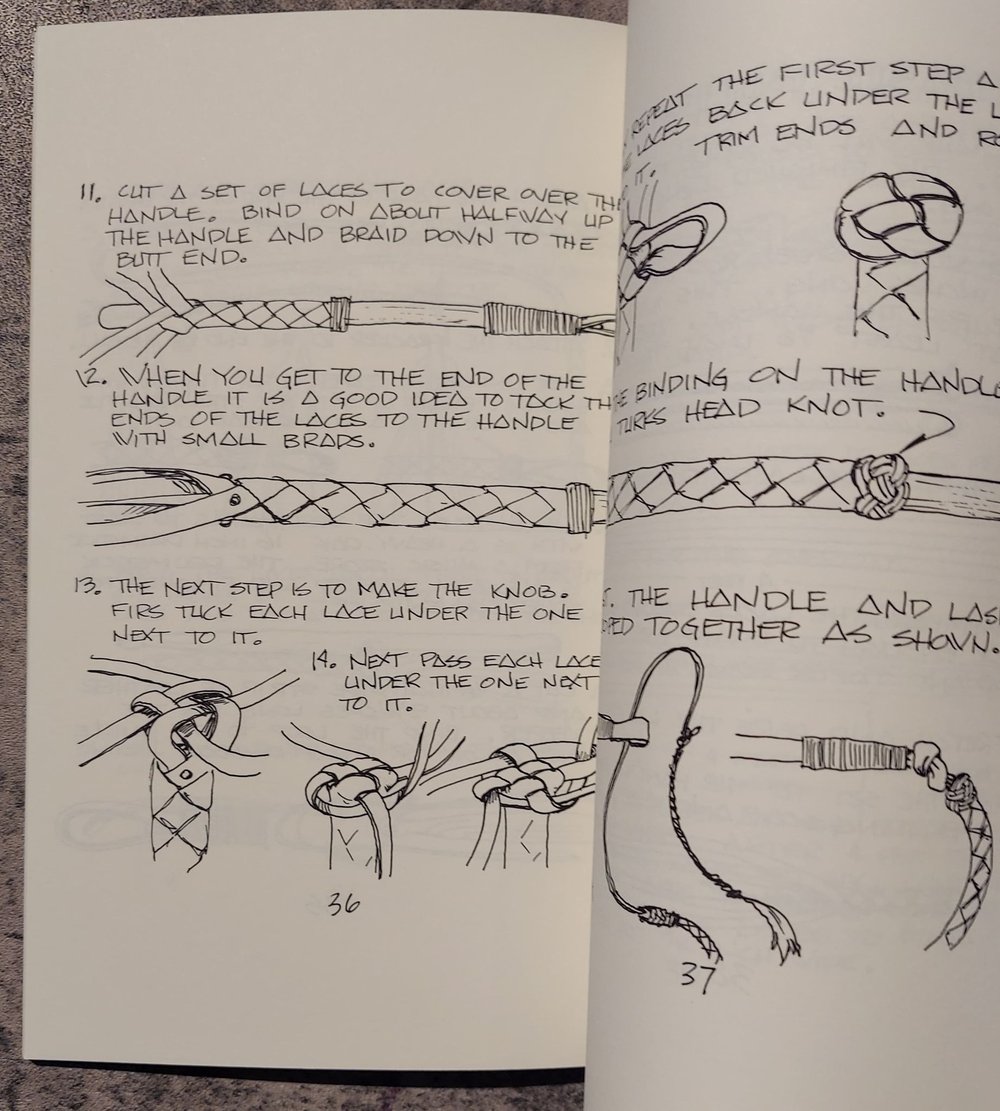 11. CUT A SET OF LACES TO COVER OVER THE
HANDLE. BIND ON ABOUT HALFWAY UP
THE HANDLE AND BRAID DOWN TO THE
BUTT END.
12. WHEN YOU GET TO THE END OF THE
HANDLE IT IS A GOOD IDEA TO TACK TH
ENDS OF THE LACES TO THE HANDLE
WITH SMALL BRADS.
13. THE NEXT STEP IS TO MAKE THE KNOB.
FIRS TUCK EACH LACE UNDER THE ONE
NEXT TO IT.
14. NEXT PASS EACH LACE
UNDER THE ONE NEXT
TO IT.
36
REPEAT THE FIRST STEP A
LACES BACK UNDER THE L
TRIM ENDS AND RO
IT.
BINDING ON THE HANDLE
TURKS HEAD KNOT.
THE HANDLE AND LAS
PED TOGETHER AS SHOWN.
37